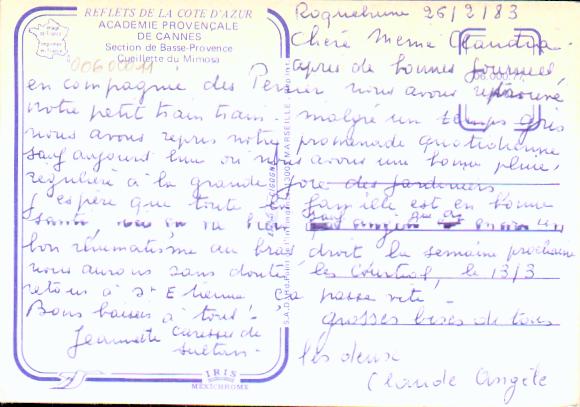 REFLETS DE LA COTE D'AZUR
ACADEMIE PROVENÇALE
DE CANNES
Section de Basse-Provence
Cueillette du Mimosa
00600011
Roquebrune 26/2/83
Chère Mémé Claudia
après de bonnes journées
en compagnie des Perrier nous avons retrouvé
notre petit train train. malgré un temps gris
nous avons repris notre promenade quotidienne
sauf aujourd'hui où nous avons une bonne pluie,
régulière à la grande joie des jardiniers
J'espère que toute la famille est en bonne
santé,
bon rhumatisme au bras droit la semaine prochaine
nous aurons sans doute les Courtial, le 13/3
retour à St Etienne ça passe vite -
Bons baisers à tous! -
grosses bises de tous
Jeannette Caresses de
Sultan
les deux
Claude Angèle
IRIS
MEXICHROME